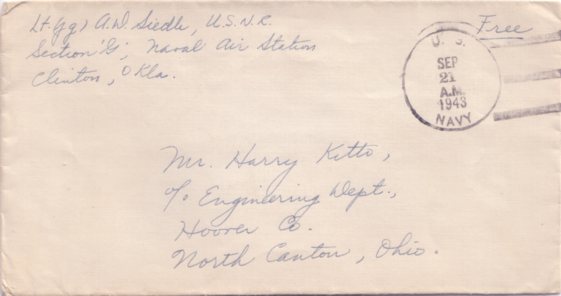 Lt. (jg) A.D. Siedle, U.S.N.R.
Section "G", Naval Air Station
Clinton, Okla.
Free
U. S.
SEP
21
A.M.
1943
NAVY
Mr. Harry Kitto,
c/o Engineering Dept.,
Hoover Co.
North Canton, Ohio.